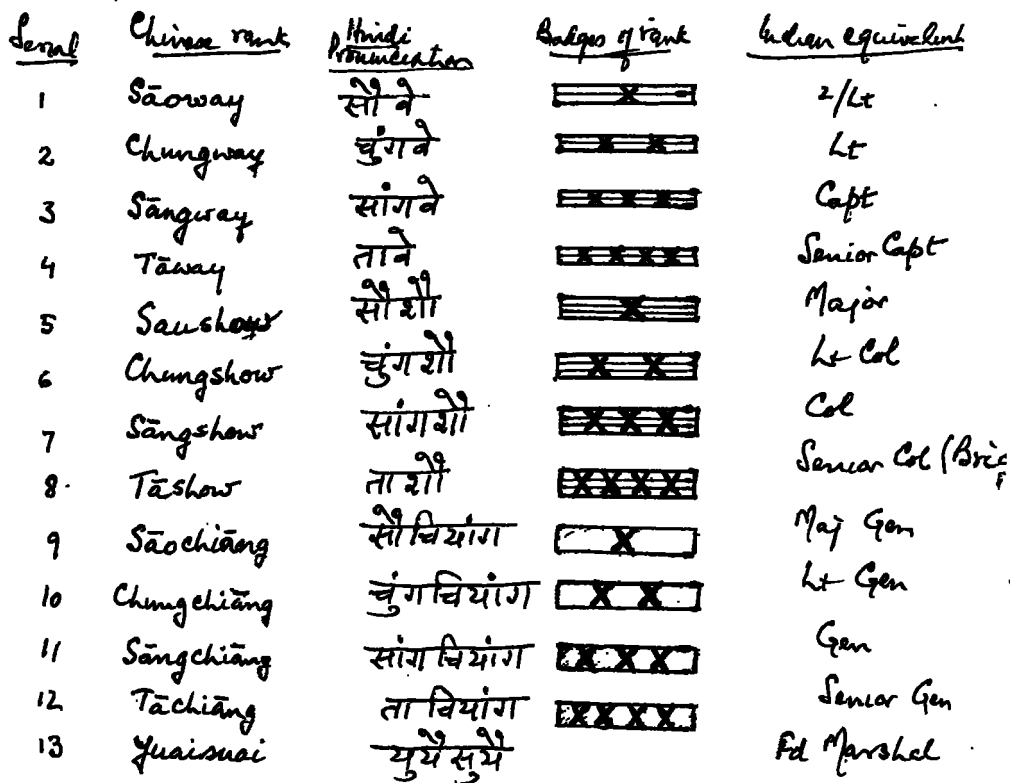 Serial Chinese rank Hindi Pronunciation Badges of rank Indian equivalent
1 Sāoway सौ वे X 2/Lt
2 Chungway चुंगवे X X Lt
3 Sāngway सांगवे X X X Capt
4 Tāway तावे X X X X Senior Capt
5 Saushow सौ शौ X Major
6 Chungshow चुंगशौ X X Lt Col
7 Sāngshow सांगशौ X X X Col
8. Tāshow ताशौ X X X X Senior Col (Brig
9 Sāochiāng सौ चियांग X Maj Gen
10 Chungchiāng चुंगचियांग X X Lt Gen
11 Sāngchiāng सांग चियांग X X X Gen
12 Tāchiāng ता चियांग X X X X Senior Gen
13 Yuaisuai युयै सुयै Fd Marshal